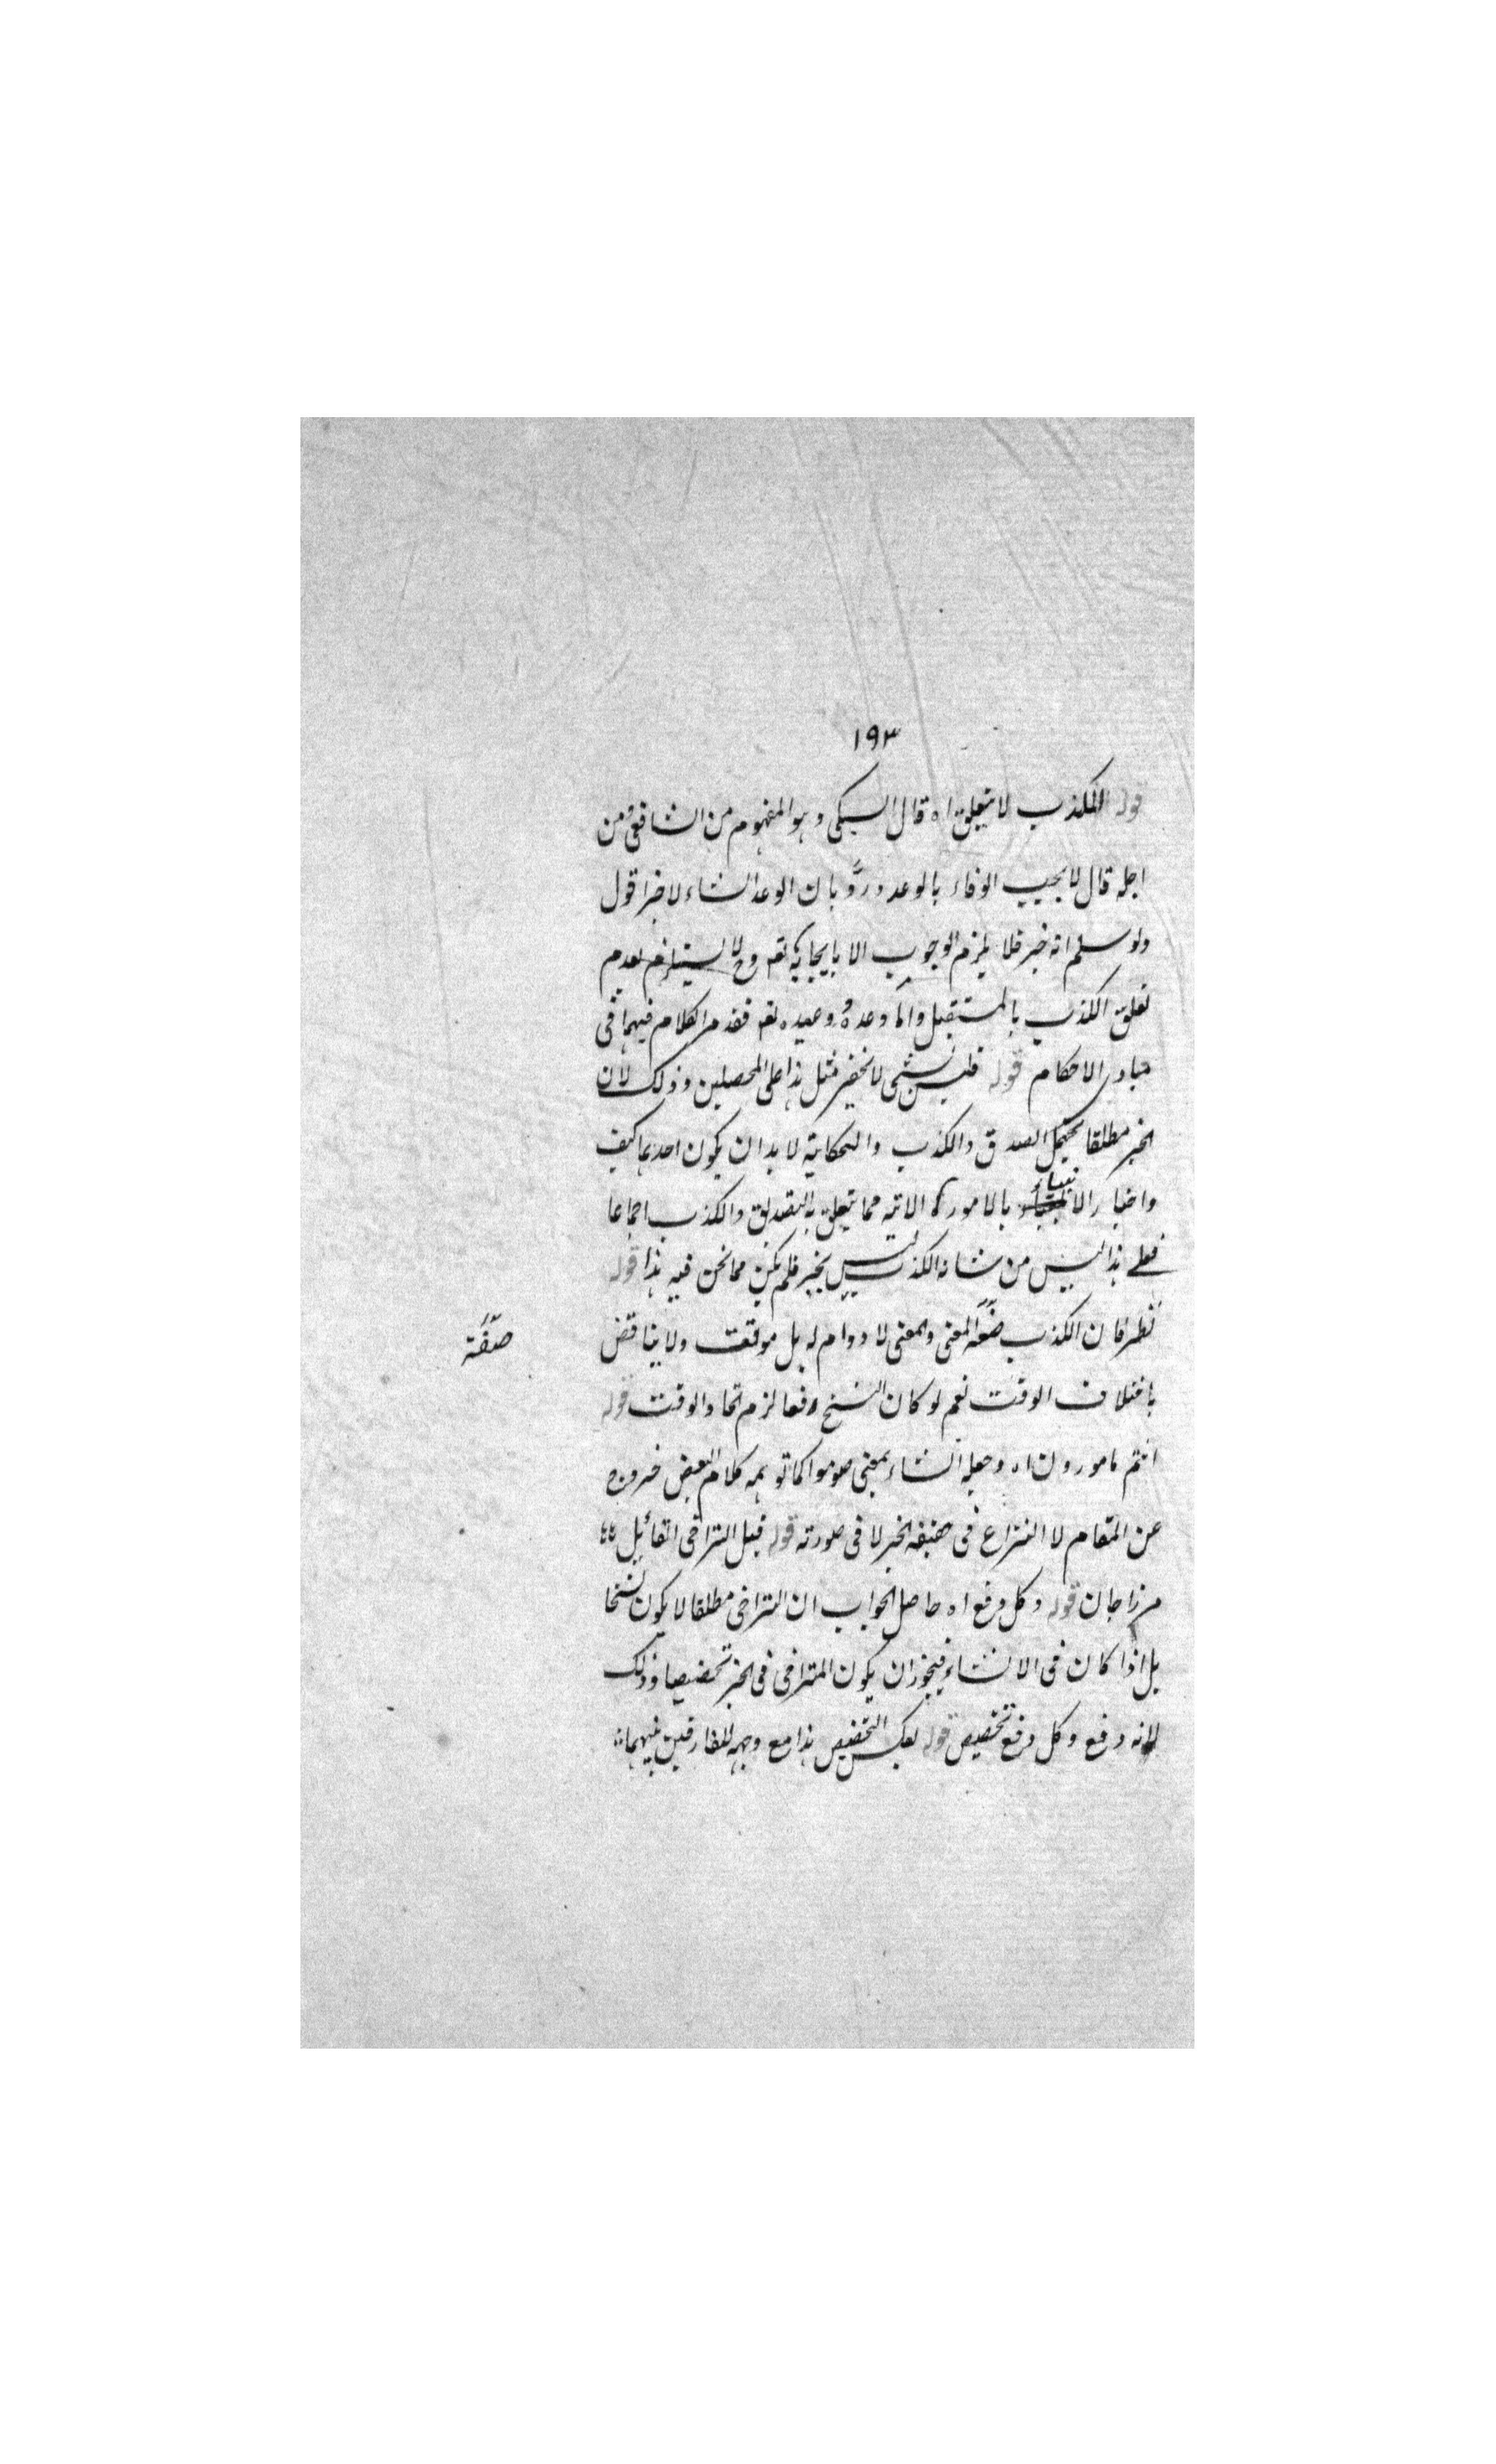 ١٩٣
قوله الكذب لا يتعلق اه قال السبكي وهو المفهوم من الشافعي ومن
اجله قال لا يجب الوفاء بالوعد وردّ بان الوعد انشاء لا خبر اقول
ولو سلم انه خبر فلا يلزم الوجوب الا بايجابه تعه وح لا يستلزم لعدم
تعلق الكذب بالمستقبل واما وعده ووعيده تعه فقد مر الكلام فيهما في
مبادي الاحكام قوله فليس بشيء لا يخفى مثل هذا على المحصلين وذلك لان
الخبر مطلقا يحتمل الصدق والكذب والحكاية لا بد ان يكون احدهما كيف
واخبار الانبياء بالامور الاتية مما يتعلق به التصديق والكذب اجماعا
فعلى هذا ليس من شانه الكذب ليس بخبر فلم يكن مما نحن فيه هذا قوله
نظر فان الكذب صفة المعنى والمعنى لا دوام له بل موقتة ولا يناقض
صفة
باختلاف الوقت نعم لو كان النسخ رفعا لزم اتحاد الوقت قوله
انتم مامورون اه وجعله انشاء بمعنى صوموا كما توهمه كلام البعض خروج
عن المقام لا النزاع في حقيقة الخبر لا في صورته قوله قيل التراخي القائل
مرزاجان قوله وكل رفع اه حاصل الجواب ان التراخي مطلقا لا يكون نسخا
بل اذا كان في الانشاء فيجوز ان يكون المتراخي في الخبر تخصيصا وذلك
لانه رفع وكل رفع تخصيص قوله لعكس التخصيص هذا مع وجهه للفارقين بينهما